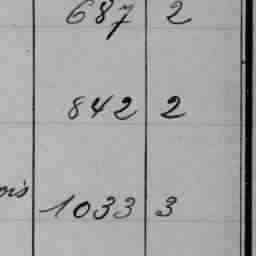 687 2
842 2
ois 1033 3